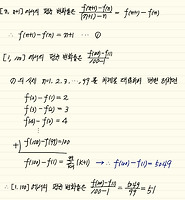 [n, n+1] 에서의 평균 변화율은 f(n+1)-f(n) / (n+1)-n = f(n+1)-f(n)
∴ f(n+1)-f(n) = n+1 … ①
[1, 100] 에서의 평균 변화율은 f(100)-f(1) / 100-1
① 의 식에 n=1, 2, 3, …, 99 를 차례로 대입하여 변변 더하면
f(2)-f(1) = 2
f(3)-f(2) = 3
f(4)-f(3) = 4
⋮
+) f(100)-f(99) = 100
f(100)-f(1) = Σ (k+1) → ∴ f(100)-f(1) = 5049
∴ [1, 100] 에서의 평균 변화율은 f(100)-f(1) / 100-1 = 5049 / 99 = 51